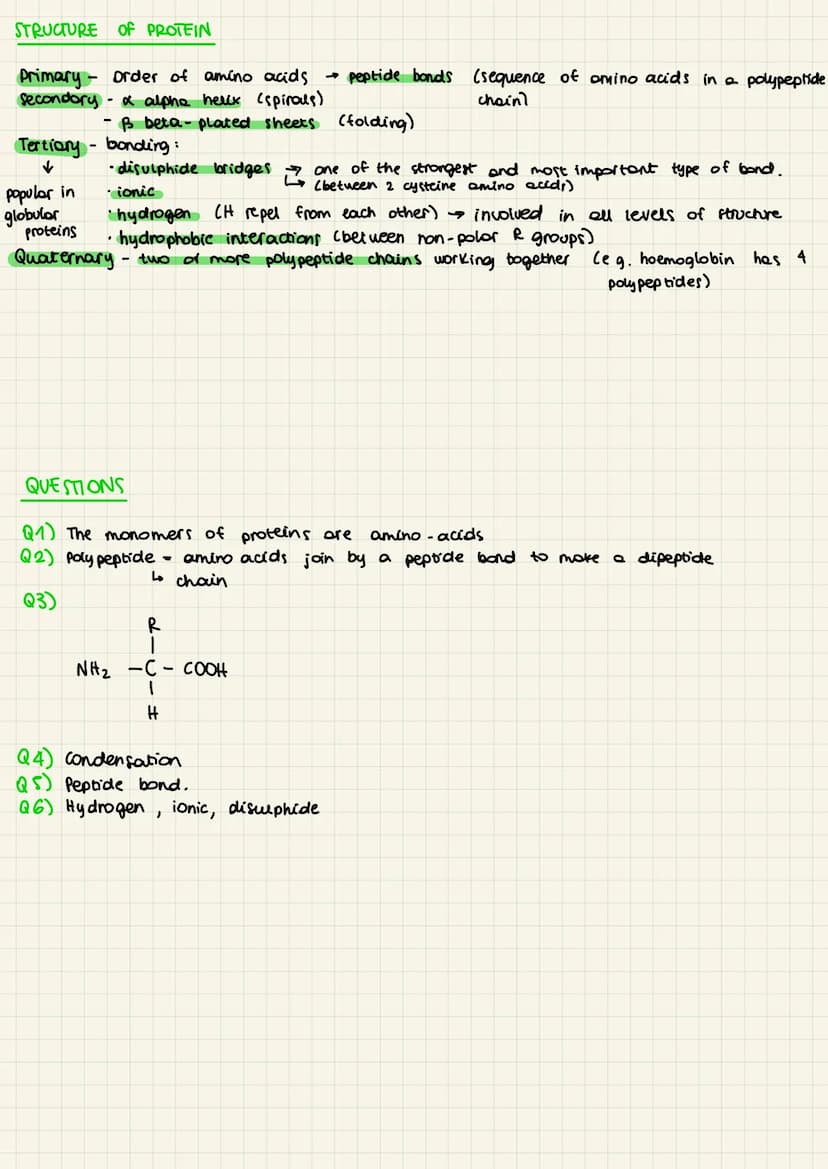 STRUCTURE OF PROTEIN
Primary - Order of amino acids → peptide bonds (sequence of amino acids in a polypeptide
chain)
Secondary - α alpha helix (spirals)
- β beta-plated sheets (folding)
Tertiary - bonding:
↓
popular in
globular
proteins
· disulphide bridges → one of the strongest and most important type of bond.
↳ (between 2 cysteine amino acids)
· ionic
· hydrogen (H repel from each other) → involved in all levels of structure
· hydrophobic interactions (between non-polar R groups)
Quaternary - two or more polypeptide chains working together (e g. hoemoglobin has 4
polypeptides)
QUESTIONS
Q1) The monomers of proteins are amino-acids
Q2) Polypeptide - amino acids join by a peptide bond to make a dipeptide
↳ chain
Q3)
R
|
NH₂ -C- COOH
|
H
Q4) Condensation
Q5) Peptide bond.
Q6) Hydrogen, ionic, disulphide